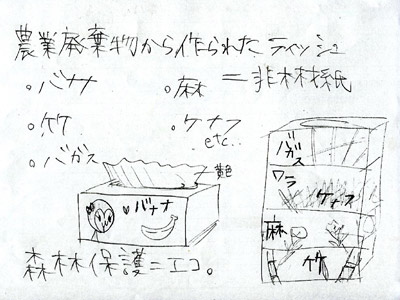 農業廃棄物から作られたティッシュ
。バナナ
。麻 = 非木材紙
。竹
。ケナフ
etc...
。バガス
黄色
♡バナナ
バガス
ワラ
ケナフ
麻
竹
森林保護=エコ。